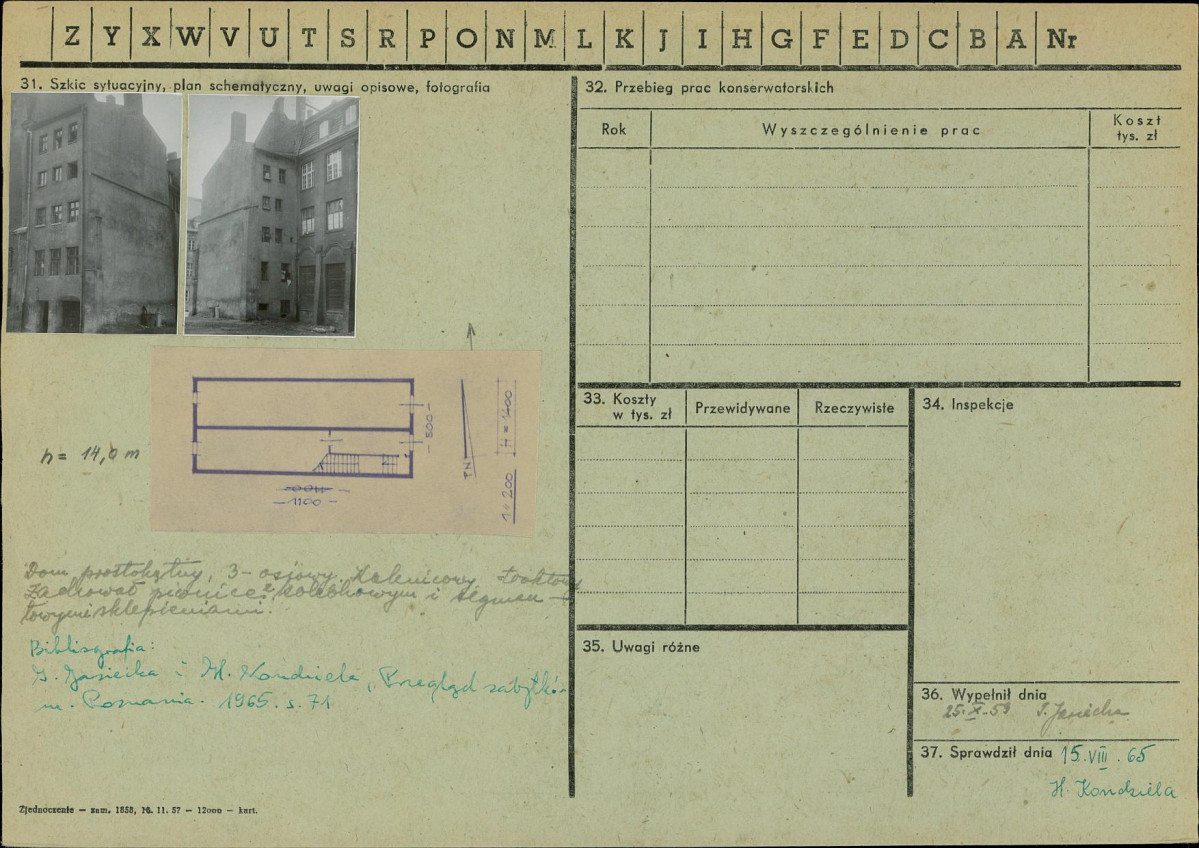 Z Y X W V U T S R P O N M L K J I H G F E D C B A Nr
31. Szkic sytuacyjny, plan schematyczny, uwagi opisowe, fotografia
h = 14,0 m
500
1100
N
H = 1400
1 ÷ 200
Dom prostokątny, 3-osiowy, kalenicowy,
Zachował piwnice z kolebkowym i segmen-
towymi sklepieniami.
Bibliografia:
I. Jasiecka i H. Kondziela, Przegląd zabytków
m. Poznania. 1965. s. 71.
Zjednoczenie — zam. 1858, 16. 11. 57 — 12000 — kart.
32. Przebieg prac konserwatorskich
Rok Wyszczególnienie prac Koszt tys. zł
33. Koszty w tys. zł Przewidywane Rzeczywiste
34. Inspekcje
35. Uwagi różne
36. Wypełnił dnia
25.X.59 I. Jasiecka
37. Sprawdził dnia 15.VIII.65
H. Kondziela